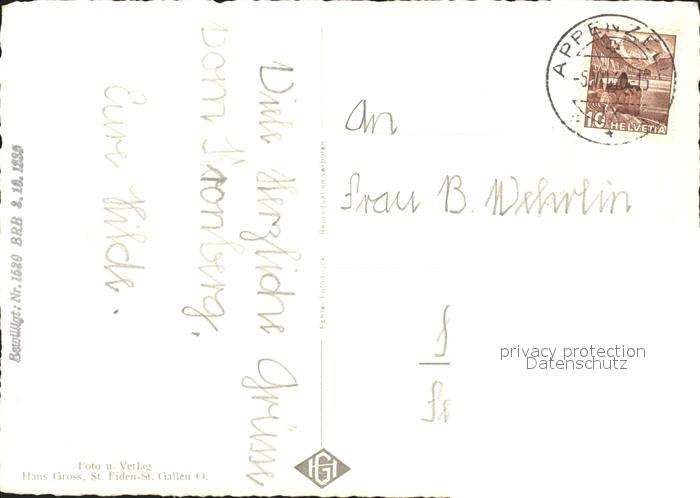 Viele Herzliche Grüsse
vom Kronberg,
Eure Hilde.
An
Frau B. Wehrlin
APPENZELL
10 HELVETIA
Bewilligt: Nr. 1520 BRB 3. 10. 1939
Echter Fotodruck Reproduktion verboten
privacy protection
Datenschutz
HG
Foto u. Verlag
Hans Gross, St. Fiden-St. Gallen O.